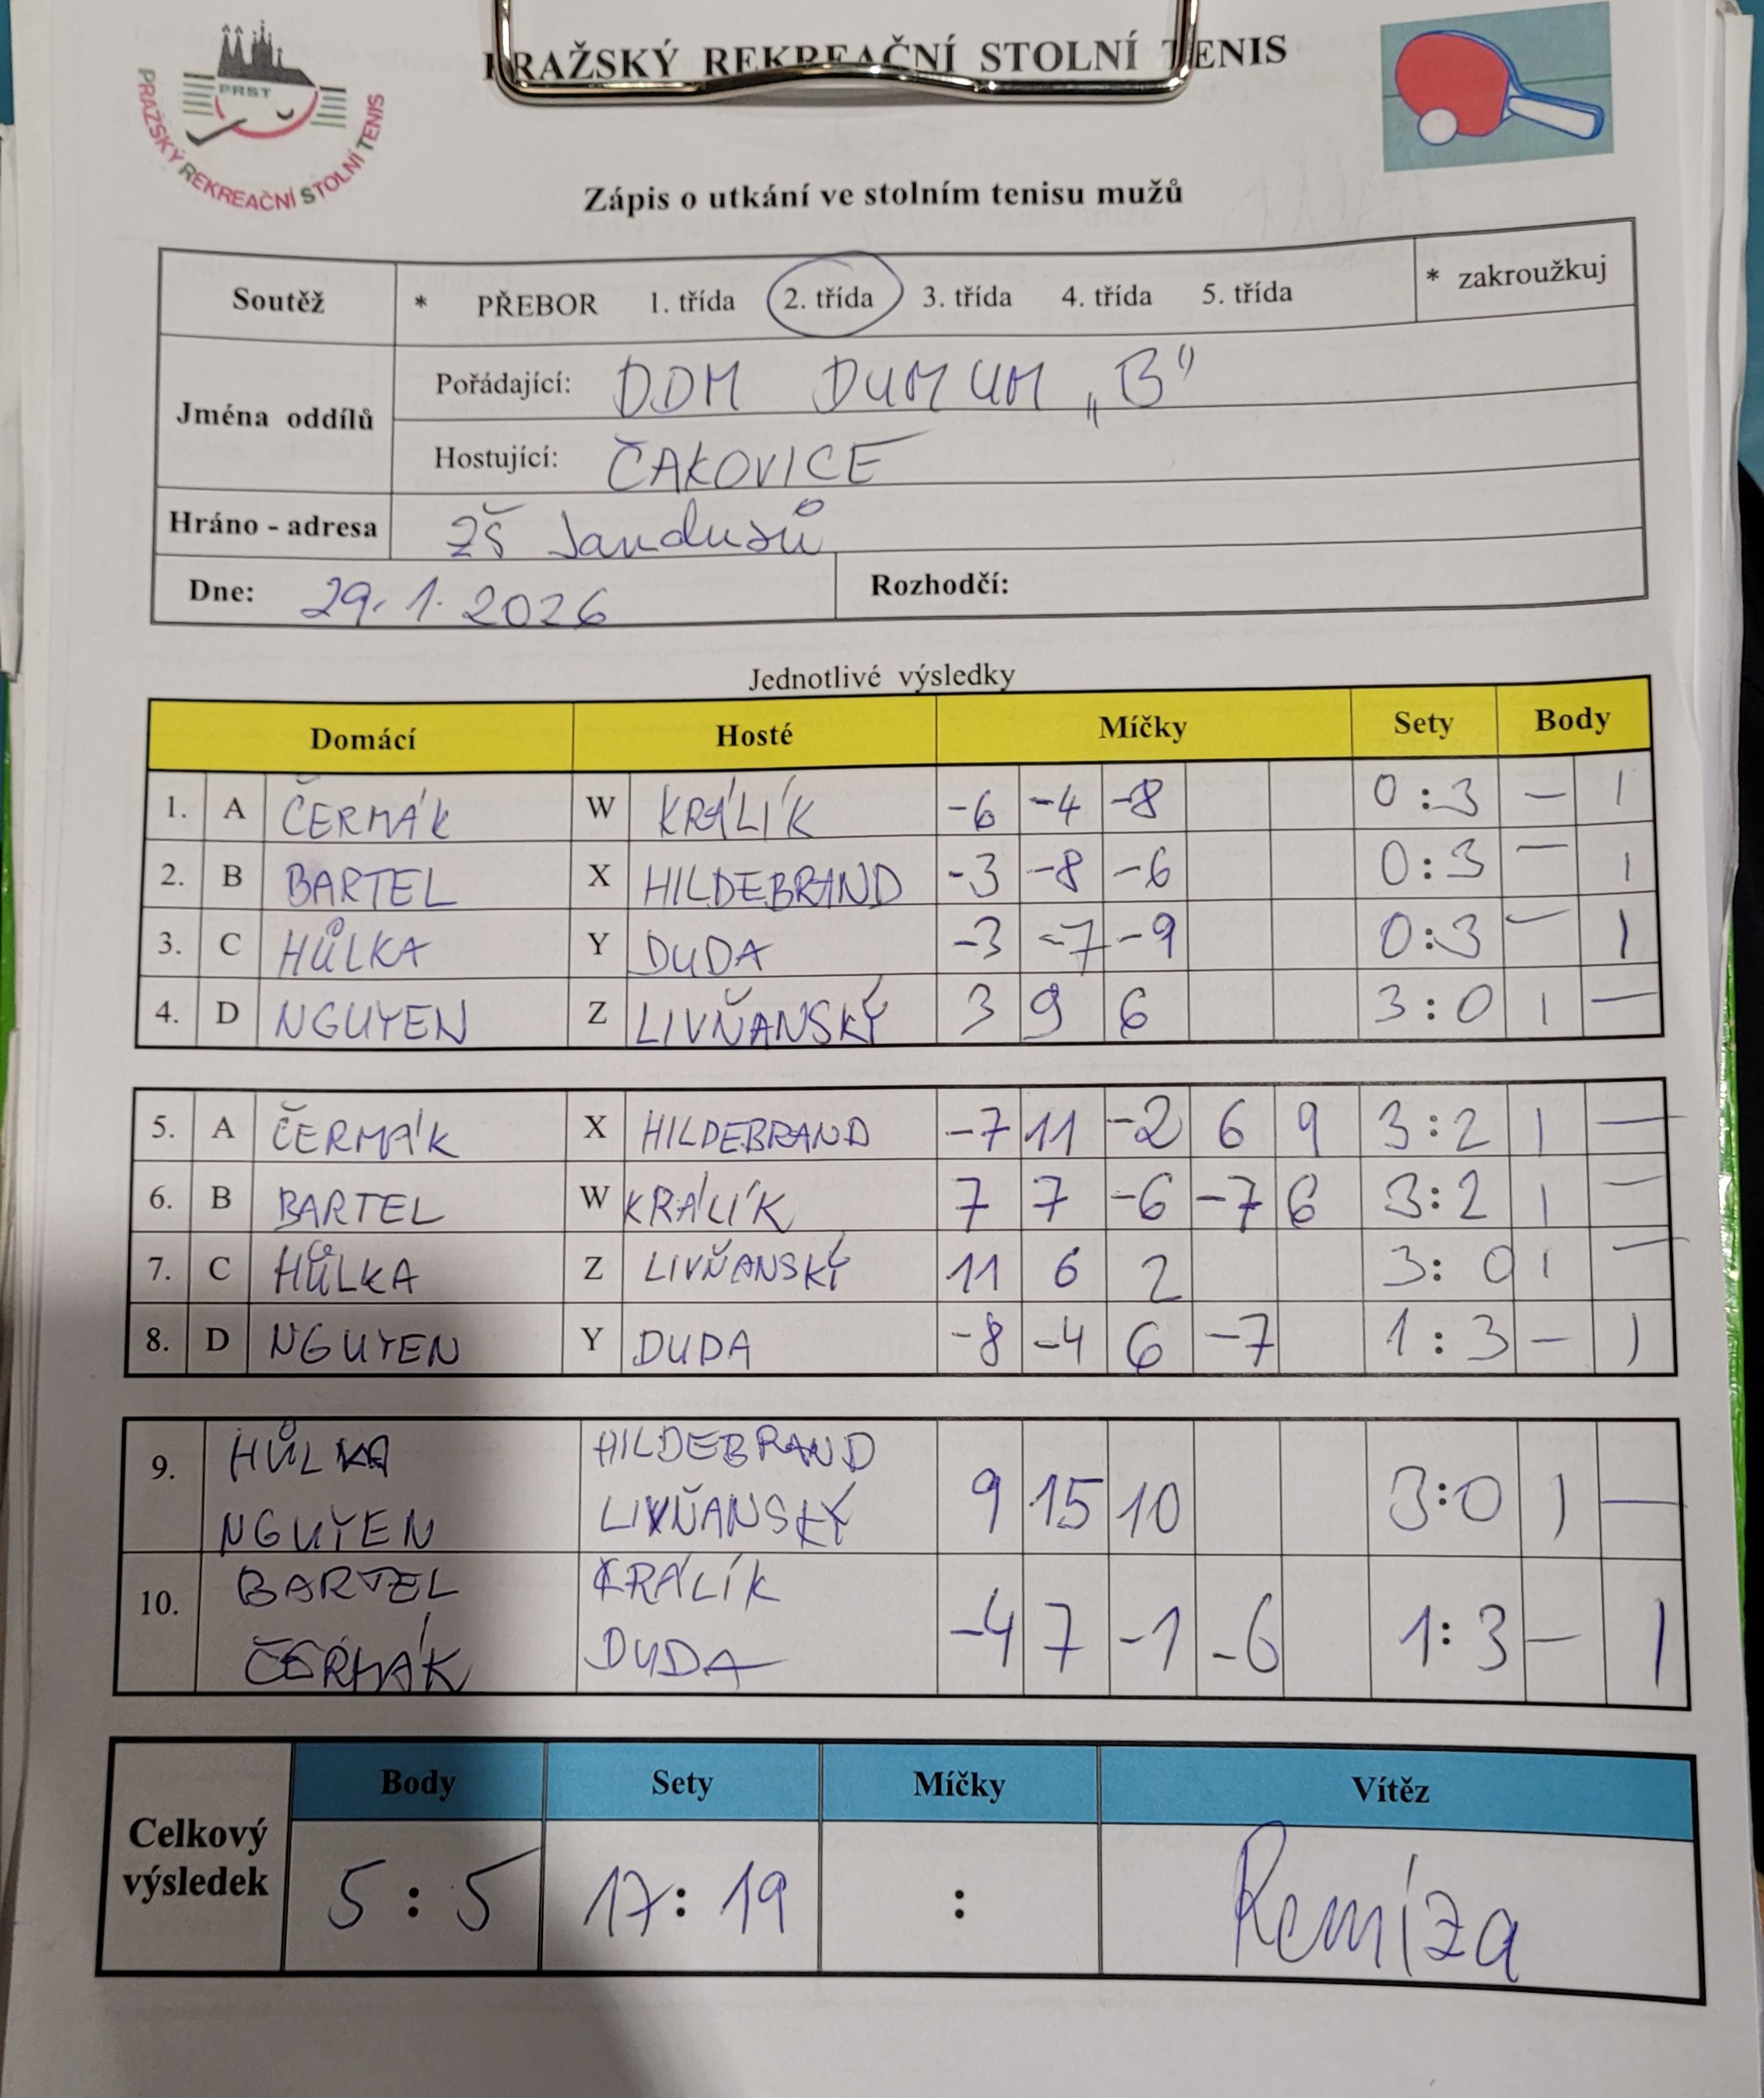 PRAŽSKÝ REKREAČNÍ STOLNÍ TENIS
PRST
PRAŽSKÝ REKREAČNÍ STOLNÍ TENIS
Zápis o utkání ve stolním tenisu mužů
Soutěž * PŘEBOR 1. třída 2. třída 3. třída 4. třída 5. třída * zakroužkuj
Jména oddílů
Pořádající: DDM DUM UM „B"
Hostující: ČAKOVICE
Hráno - adresa ZŠ Jandusů
Dne: 29.1.2026 Rozhodčí:
Jednotlivé výsledky
Domácí Hosté Míčky Sety Body
1. A ČERMÁK W KRÁLÍK -6 -4 -8 0:3 — 1
2. B BARTEL X HILDEBRAND -3 -8 -6 0:3 — 1
3. C HŮLKA Y DUDA -3 -7 -9 0:3 — 1
4. D NGUYEN Z LIVŇANSKÝ 3 9 6 3:0 1 —
5. A ČERMÁK X HILDEBRAND -7 11 -2 6 9 3:2 1 —
6. B BARTEL W KRÁLÍK 7 7 -6 -7 6 3:2 1 —
7. C HŮLKA Z LIVŇANSKÝ 11 6 2 3:0 1 —
8. D NGUYEN Y DUDA -8 -4 6 -7 1:3 — 1
HŮLKA HILDEBRAND
9. 9 15 10 3:0 1 —
NGUYEN LIVŇANSKÝ
BARTEL KRÁLÍK
10. -4 7 -1 -6 1:3 — 1
ČERMÁK DUDA
Body Sety Míčky Vítěz
Celkový výsledek 5:5 17:19 : Remíza